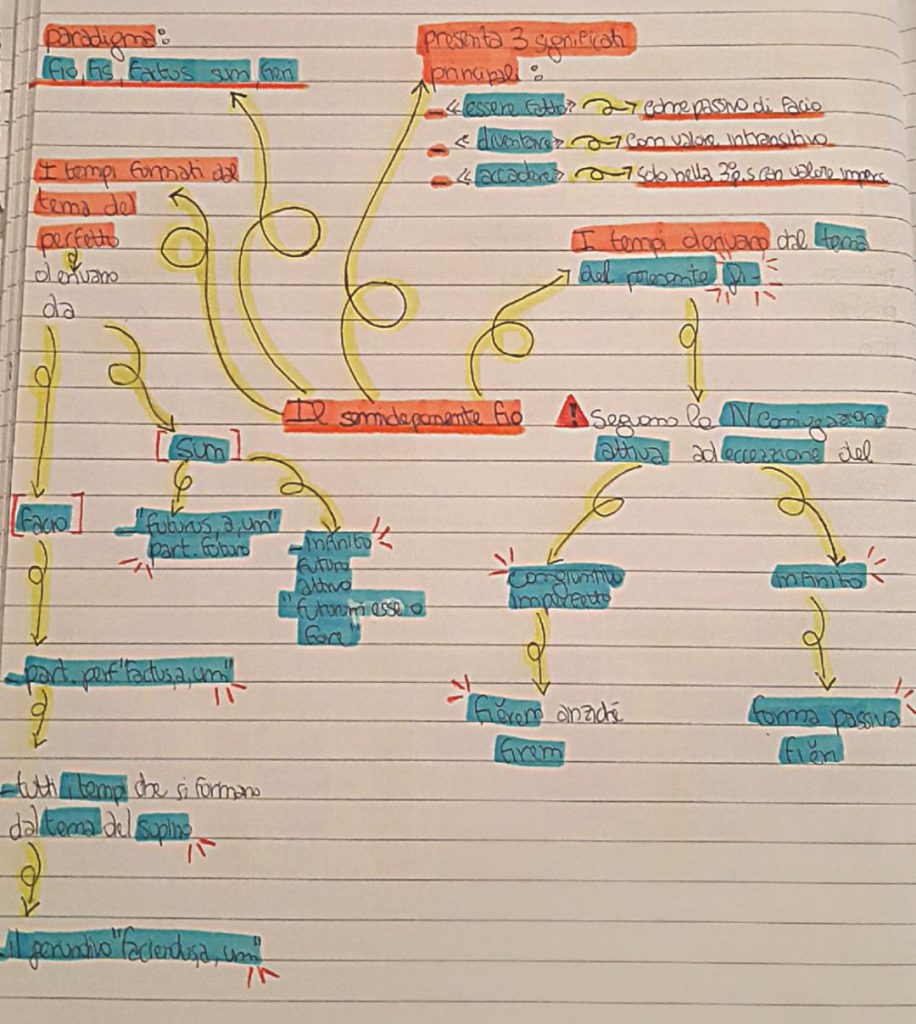 paradigma:
fio, fis, factus sum, fieri
presenta 3 significati
principali:
- «essere fatto» → come passivo di facio
- «diventare» → con valore intransitivo
- «accadere» → solo nella 3ª s con valore impers.
I tempi formati dal
tema del
perfetto
derivano
da
I tempi derivano dal tema
del presente fi-
Il semideponente fio
! Seguono la IV coniugazione
attiva ad eccezzione del
[sum]
[facio]
- "futurus, a, um"
part. futuro
- infinito
futuro
attivo
"futurum esse o
fore"
congiuntivo
imperfetto
infinito
- part. perf "factus, a, um"
fiĕrem anziché
firem
forma passiva
fiĕri
- tutti i tempi che si formano
dal tema del supino
- il gerundivo "faciendus, a, um"